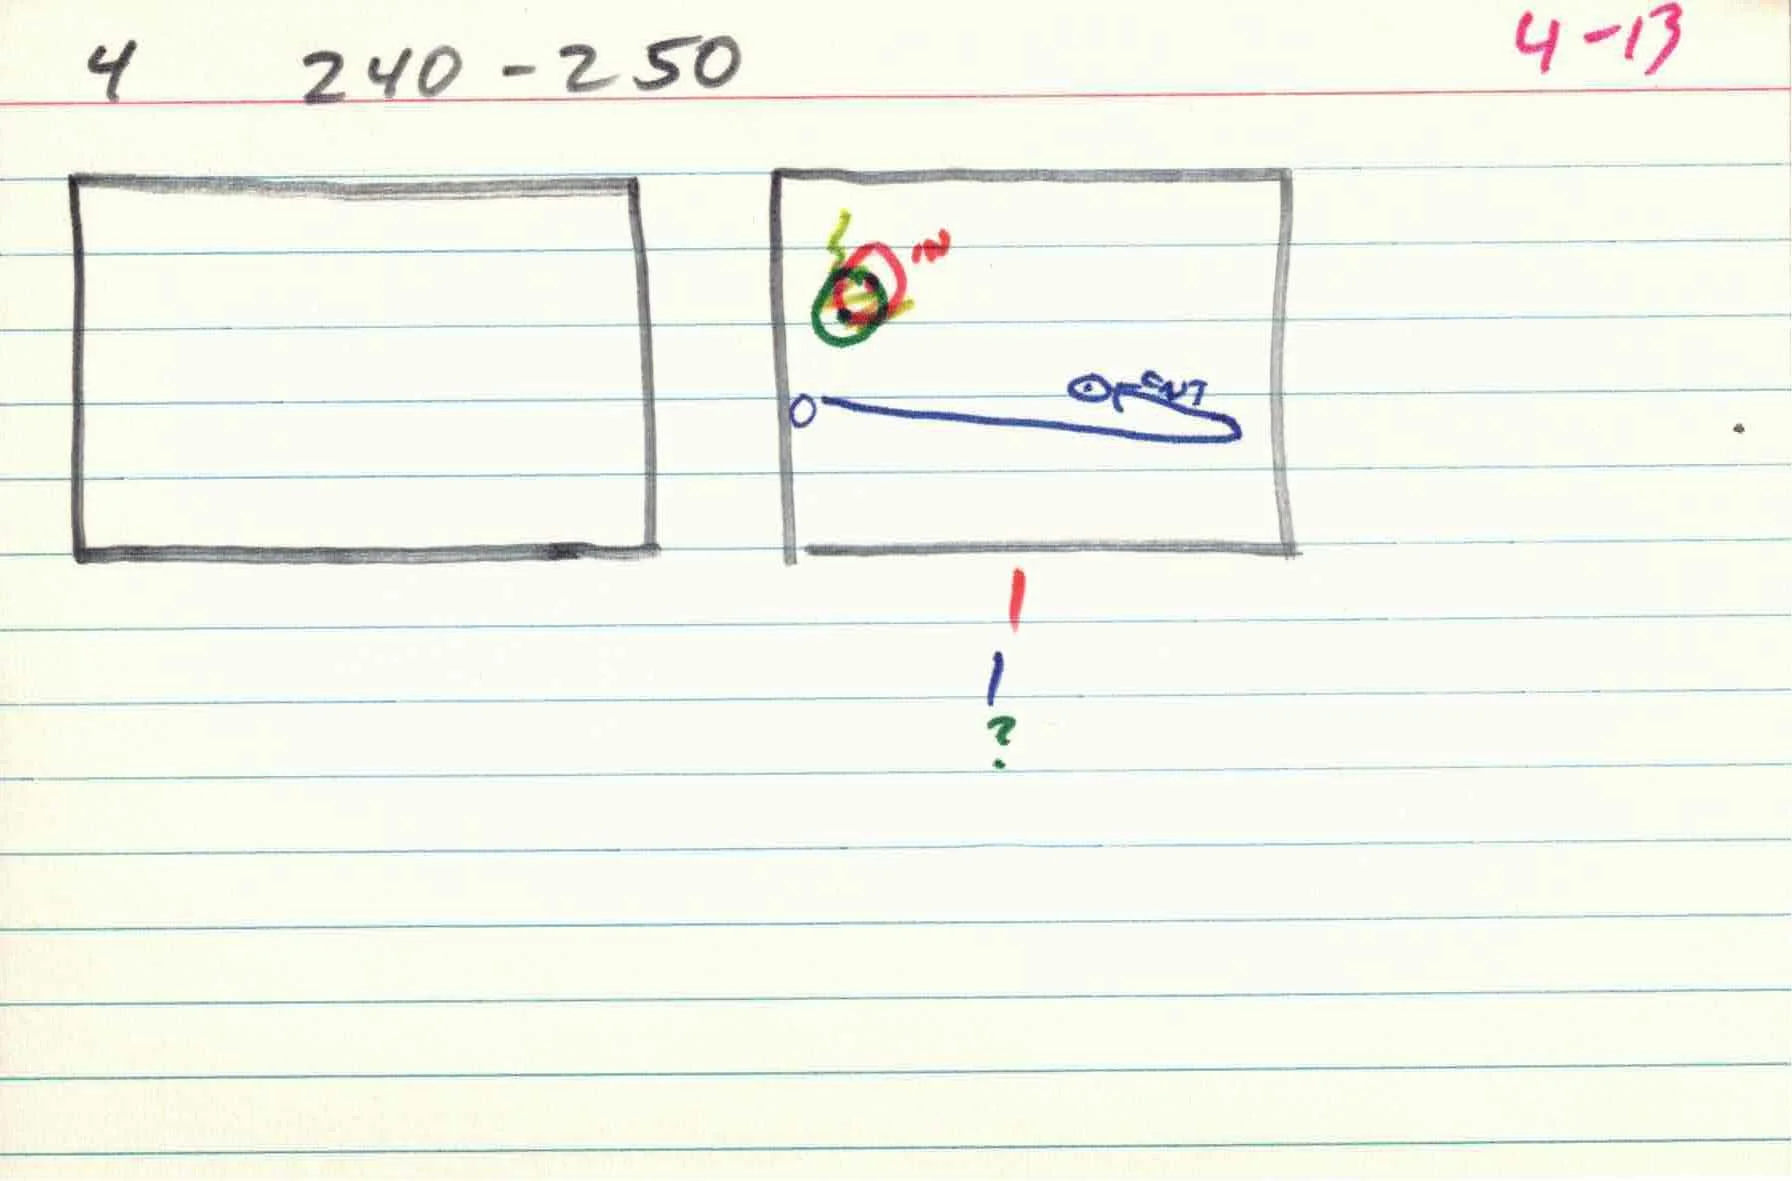 4 240-250 4-13
IN
O ENT
1
1
?